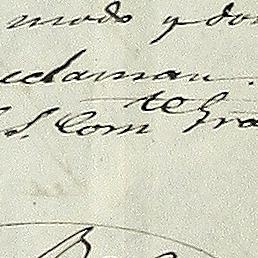 modo y do
eclaman.
te
S. Com Gra